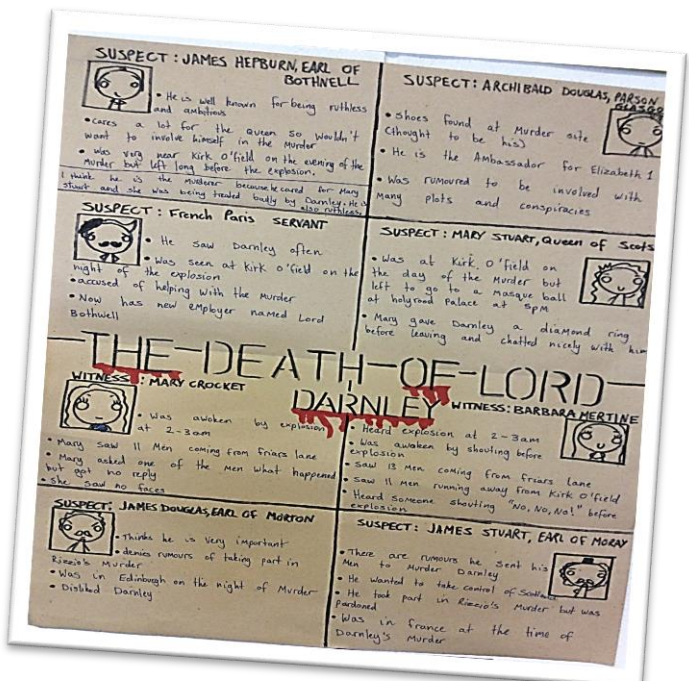 SUSPECT: JAMES HEPBURN, EARL OF
BOTHNELL
• He is well known for being ruthless
and ambitious
• cares a lot for the Queen so wouldn't
want to involve himself in the Murder
• was very near Kirk O'field on the evening of the
Murder but left long before the explosion.
I think he is the Murderer because he cared for Mary
Stuart and she was being treated badly by Darnley. He is
also ruthless.
SUSPECT: ARCHIBALD DOUGLAS, PARSON
• Shoes found at Murder site
(thought to be his)
• He is the Ambassador for Elizabeth 1
• Was rumoured to be involved with
many plots and conspiracies
SUSPECT: French Paris SERVANT
• He saw Darnley often
• Was seen at Kirk O'field on the
night of the explosion
• accused of helping with the Murder
• Now has new employer named Lord
Bothwell
SUSPECT: MARY STUART, Queen of Scots
• Was at Kirk O'field on
the day of the Murder but
left to go to a masque ball
at holyrood Palace at 5pm
• Mary gave Darnley a diamond ring
before leaving and chatted nicely with him
THE DEATH OF LORD
DARNLEY
WITNESS: MARY CROCKET
• Was awoken by explosion
at 2-3am
• Mary saw 11 Men coming from friars lane
• Mary asked one of the men what happened
but got no reply
• She saw no faces
WITNESS: BARBARA MERTINE
• Heard explosion at 2-3am
• Was awoken by shouting before
explosion
• Saw 13 Men coming from friars lane
• Saw 11 Men running away from Kirk O'field
• Heard someone shouting "No, No, No!" before
explosion
SUSPECT: JAMES DOUGLAS, EARL OF MORTON
• Thinks he is very important
• denies rumours of taking part in
Rizzio's Murder
• Was in Edinburgh on the night of Murder
• Disliked Darnley
SUSPECT: JAMES STUART, EARL OF MORAY
• There are rumours he sent his
Men to Murder Darnley
• He wanted to take control of Scotland
• He took part in Rizzio's Murder but was
pardoned
• Was in france at the time of
Darnley's Murder